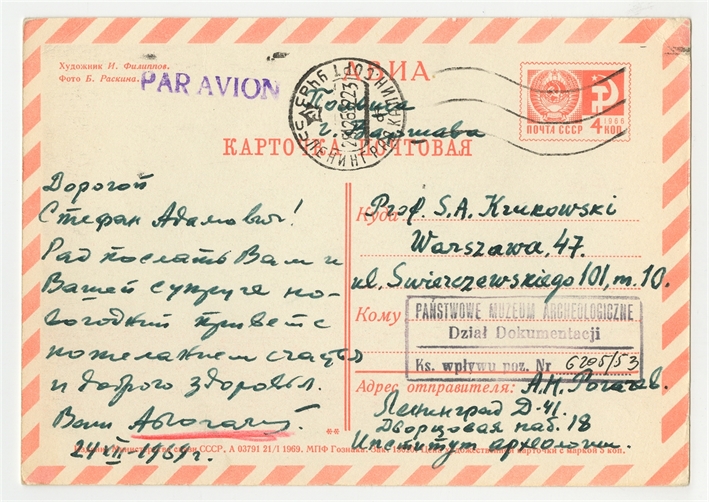 Художник И. Филиппов.
Фото Б. Раскина.
PAR AVION
АВИА
Польша
г. Варшава
КАРТОЧКА ПОЧТОВАЯ
ПОЧТА СССР
1966
4 КОП
Дорогой
Стефан Адамович!
Рад послать Вам и
Вашей супруге но-
вогодний привет с
пожеланием счастья
и доброго здоровья.
Ваш
24 XII-1969г.
Куда Prof. S.A. Krukowski
Warszawa, 47.
ul. Swierczewskiego 101, m. 10.
Кому
PAŃSTWOWE MUZEUM ARCHEOLOGICZNE
Dział Dokumentacji
Ks. wpływu poz. Nr 6205/53
Адрес отправителя: А.Н. Рогачев.
Ленинград Д-41.
Дворцовая наб. 18
Институт археологии.
Министерства связи СССР. А 03791 21/I 1969. МПФ Гознака. Зак. Цена художественной карточки с маркой 5 коп.